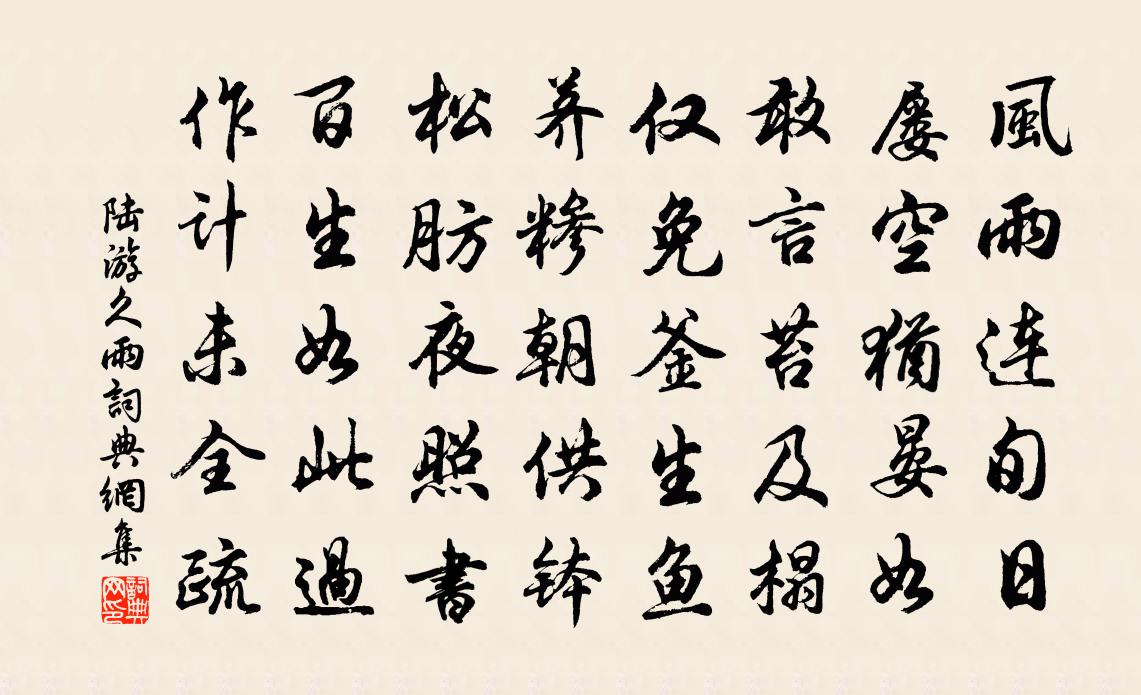 風雨连旬日
屡空猶晏如
敢言苔及榻
仅免釜生鱼
荞糁朝供钵
松肪夜照書
百生如此過
作计未全疏
陆游久雨詞典網集
詞典网印